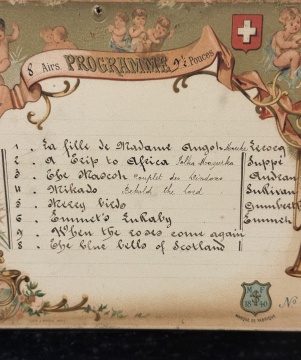 8 Airs. PROGRAMME Pouces
1 . La fille de Madame Angot Marche Lecocq
2 . A Trip to Africa Polka Mazurka Suppé
3 . The Mascot couplet des Audran
4 . Mikado Behold the lord Sullivan
5 . Merry birds Gumbert
6 . Emmet's Lullaby Emmett
7 . When the roses come again
8 . The blue bells of Scotland
MARQUE DE FABRIQUE
No